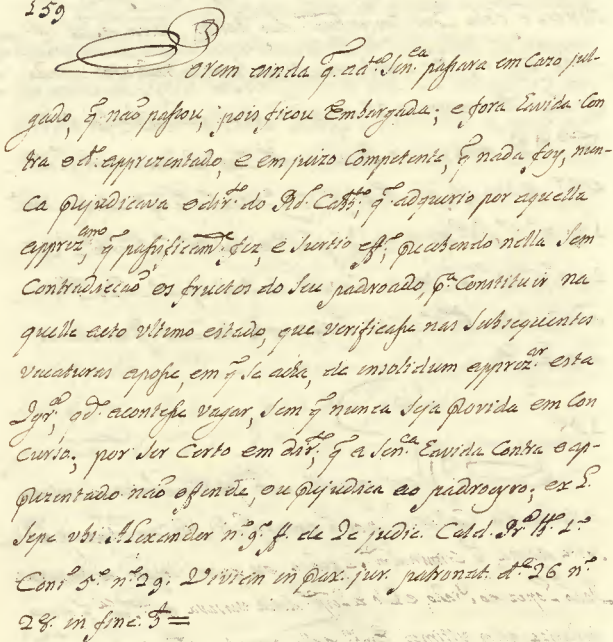 159
Porem ainda q̃ ad.ª Sen.ᶜᵃ passara em Cazo jul-
gado, q̃ naõ passou, pois ficou Embargada; e fora havida Con
tra o d.º apprezentado, e em juizo Competente, q̃ nada foy, nun-
ca prejudicava o dir.ᵗᵒ do R.ᵈᵒ Cab.ᵈᵒ, q̃ adquerio por aquella
apprez.ᵃᵐᵒ, q̃ pasificam.ᵗᵉ fez, e surtio eff.º, precebendo nella Sem
Contradicçaõ os fructos do seu padroado, p.ª Constituir na
quelle acto vltimo estado, que verificasse nas Subsequentes
vacaturas aposse, em q̃ se acha, de insolidum apprez.ᵃʳ esta
Igr.ª, q.ᵈᵒ acontesse vagar, Sem q̃ nunca Seja provida em Con
curso; por Ser Certo em dir.ᵗᵒ, q̃ a Sen.ᶜᵃ havida Contra o ap-
prezentado naõ offende, ou prejudica ao padroeyro; ex L.
Sepe vbi Alexander n.º 9.º ff. de Re judic. Cald.
Cons.º 5.º n.º 29. Vivian in prax. jur. patronat. n.º
28. in fine. =